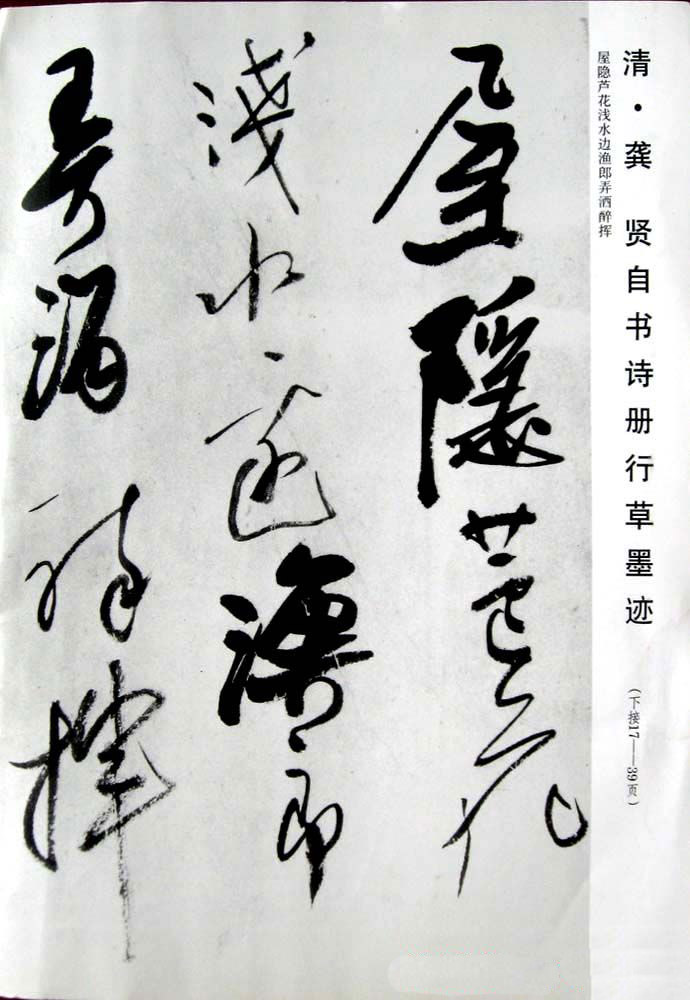 清·龚 贤自书诗册行草墨迹
(下接17——39页)
屋隐芦花浅水边渔郎弄洒醉挥
屋隱蘆花
淺水邊漁郎
弄酒醉揮